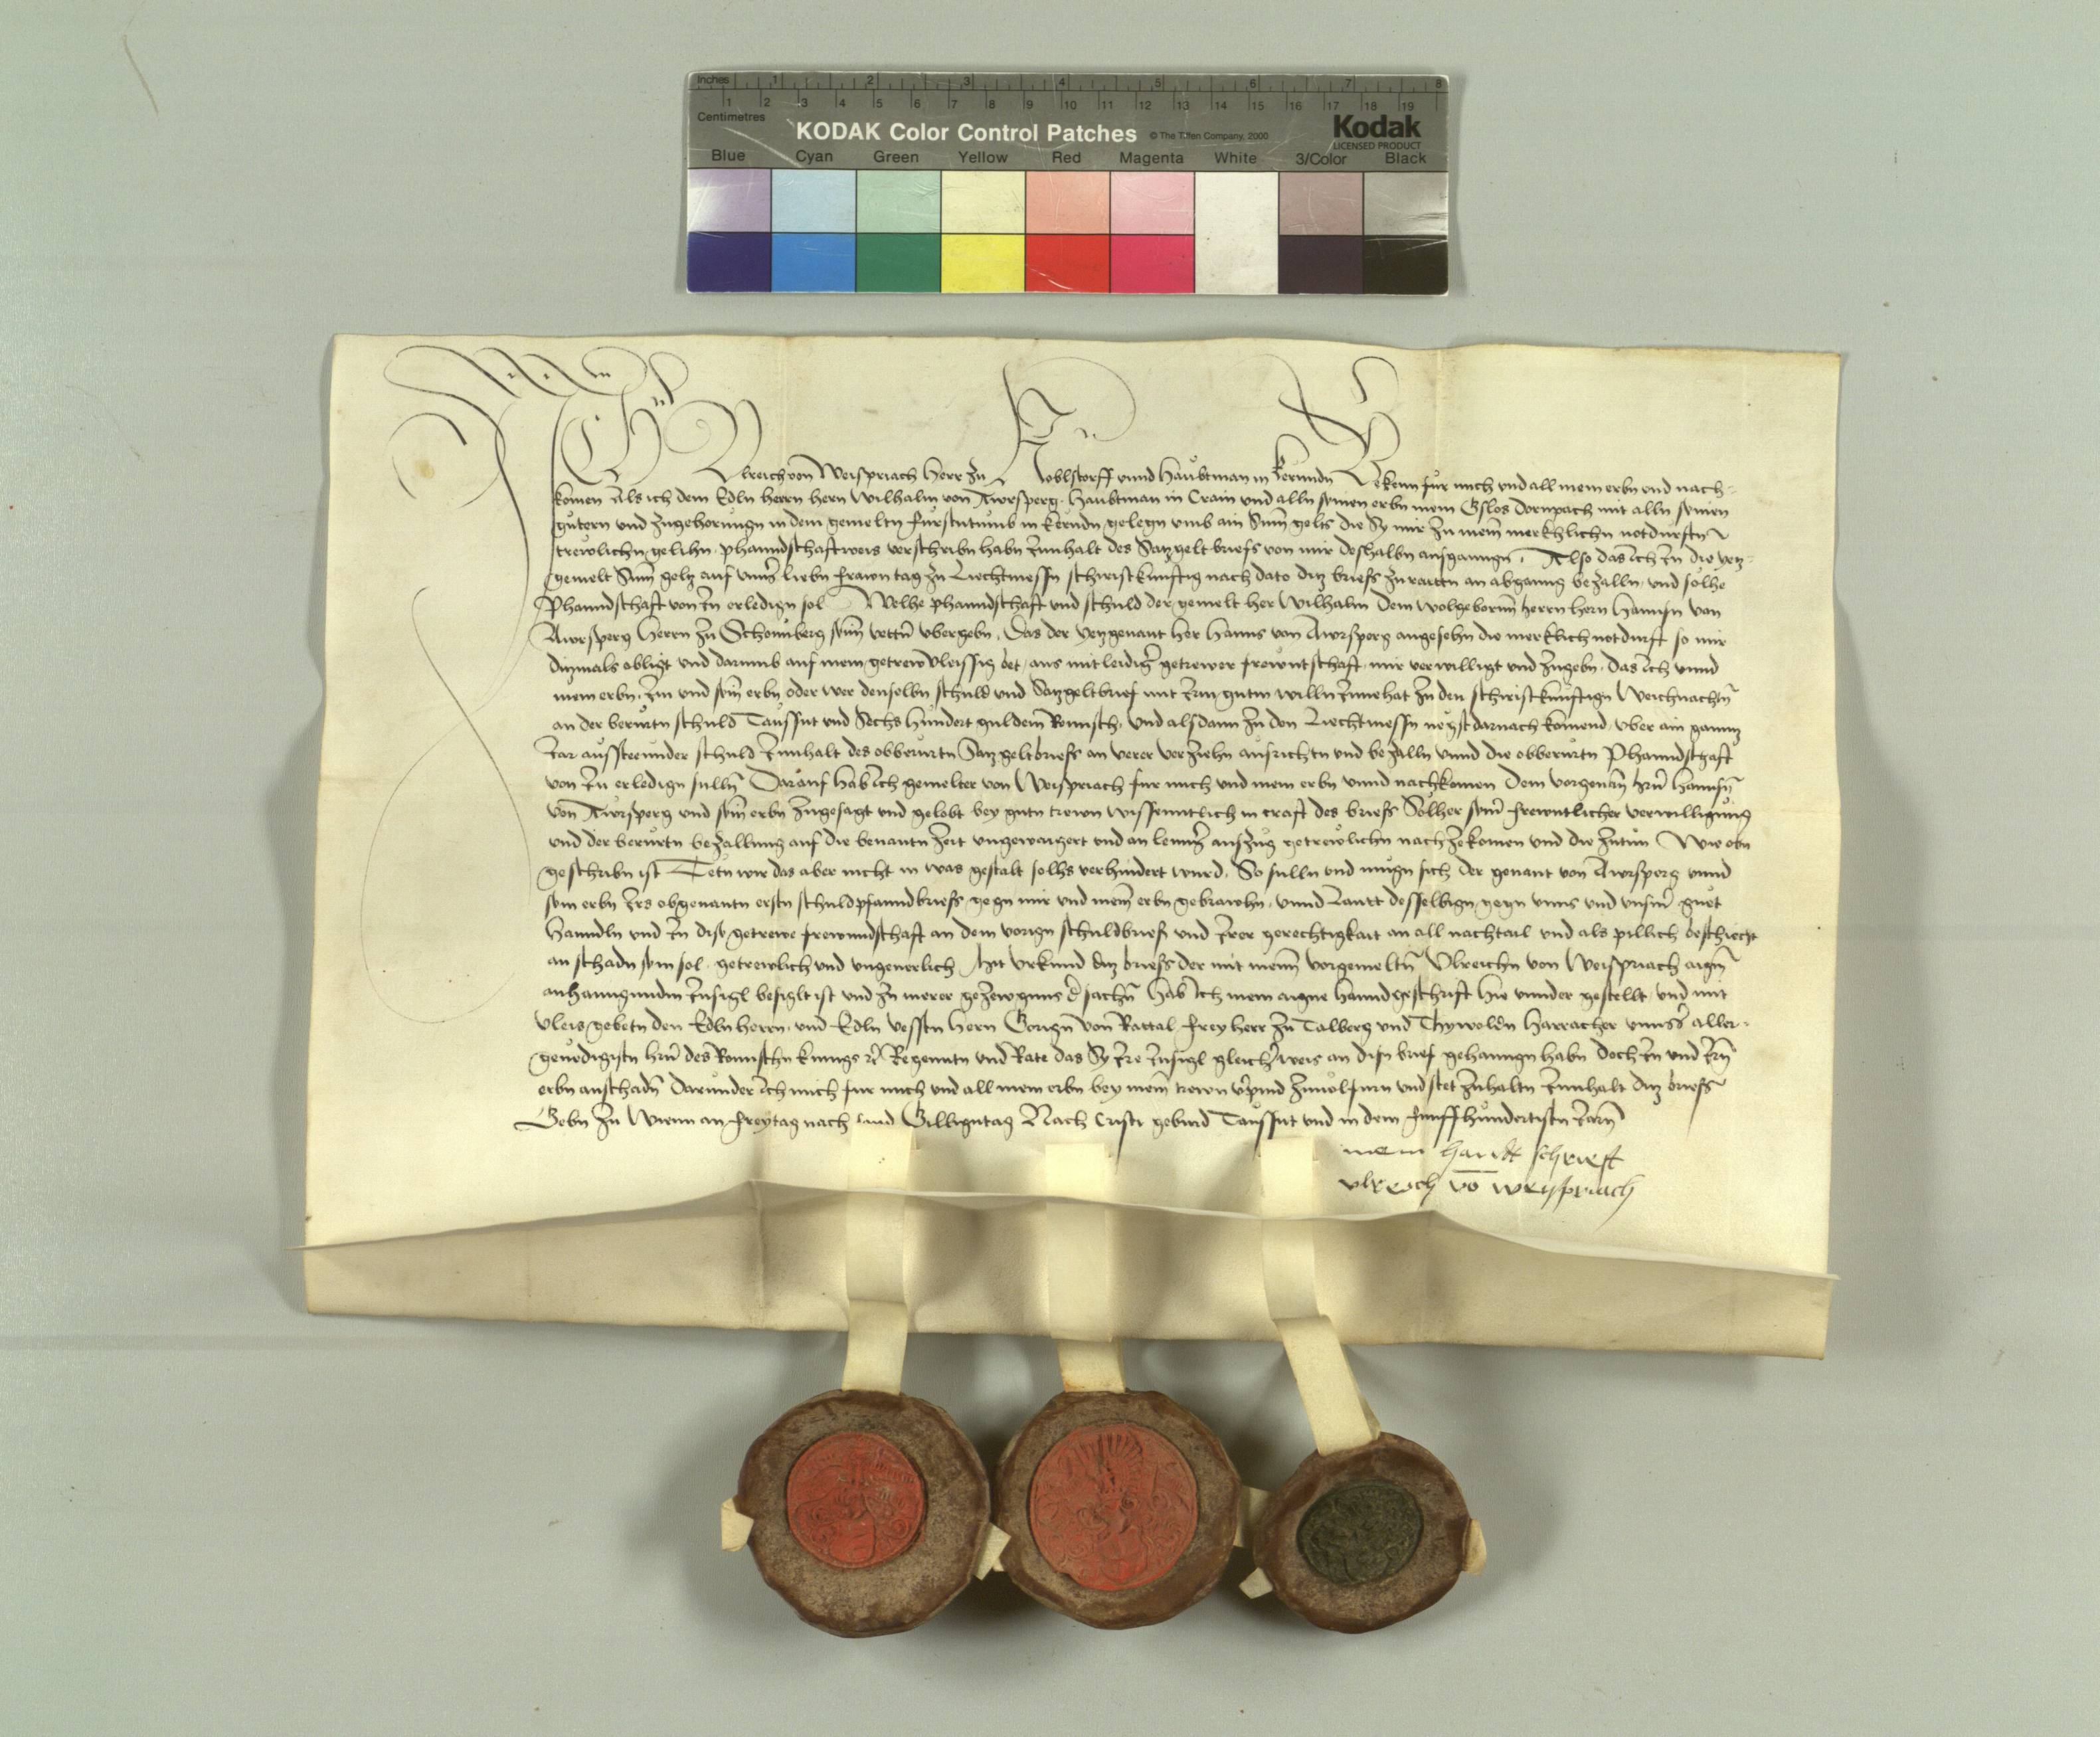 Inches 1 2 3 4 5 6 7 8
1 2 3 4 5 6 7 8 9 10 11 12 13 14 15 16 17 18 19
Centimetres
KODAK Color Control Patches © The Tiffen Company, 2000 Kodak
LICENSED PRODUCT
Blue Cyan Green Yellow Red Magenta White 3/Color Black
Ich Ulreich von Weispriach Herr zu Koblstorff unnd Haubtman in Kernndn Bekenn für mich und all mein erbn und nach-
komen Als ich dem Edln herrn hern Wilhalm von Awrsperg Haubtman in Crain und alln seinen erbn mein Gslos Dornpach mit alln seinen
gutern und zugehorungn in dem gemeltn furstntumb in Kerndn gelegn umb ain Sum gelts die Sy mir zu meinn merkhlichn notdurftn
trewlichn gelihn phanndschaftweis verschribn habn Innhalt des Satzgelt briefs von mir deshalbn ausganngn Also das ich In die yetz-
gemelt Sum geltz auf unns liebn frawn tag zu Liechtmessn schiristkunftig nach dato ditz briefs zuraittn an abganng bezalln und solhe
Phanndschaft von In erledign sol Welhe phanndschaft und schuld der gemelt her Wilhalm dem wolgebornn herrn hern Hannsn von
Awrsperg Herrn zu Schonnberg seinn vettn ubergebn Das der yetzgenant her Hanns von Awrsperg angesehn die merklich notdurft so mir
ditzmals obligt und darumb auf mein getrew vleissig bet aus mitleidiger getrewer frewntschaft mir verwilligt und zugebn das ich unnd
mein erbn Im und sein erbn oder wer denselbn schuld und Satzgeltbrief mit Irm gutn willn Innehat zu den schiristkunftign Weichnachtn
an der berurtn schuld Taussnt und Sechs hundert guldein Reinisch und alsdann zu den Liechtmessn negst darnach komend uber ain gannz
Jar aussteeunder schuld Innhalt des obberurtn Satzgeltbriefs an verer verziehn ausrichtn und bezalln unnd die obberurtn Phanndschaft
von In erledign sulln Darauf hab ich gemelter von Weispriach fur mich und mein erbn unnd nachkomen dem vorgenantn hern Hannsn
von Awrsperg und sein erbn zugesagt und gelobt bey gutn trewn wissenntlich in craft des briefs Solher seiner frewntlicher verwilligung
und der berurtn bezallung auf die benantn Zeit ungewaigert und an lennger auszug getrewlichn nachzekomen und die zutun Wie obn
geschribn ist Tetn wir das aber nicht in was gestalt solhs verhindert wurd So sulln und mugn sich der genant von Awrsperg unnd
sein erbn Irs obgenantn erstn schuldpfanndbriefs gegn mir und meinn erbn gebrawchn unnd Lautt desselbign gegn unns und unsern guet
hanndln und In dise getrewe frewnndschaft an dem vorign schuldbrief und Irer gerechtigkait an all nachtail und als pillich beschiecht
an schadn sein sol getrewlich und ungeverlich Mit Urkund ditz briefs der mit meinn vorgemeltn Ulreichn von Weispriach aign
anhanngundn Insigl besiglt ist und zu merer gezewgnus der sachn Hab ich mein aigne hanndgeschrift hie unnder gestellt und mit
vleis gebetn den Edln herrn und Edln vesstn Hern Gorign von Rottal freyherr zu Talberg und Thywoldn Harracher unnsers aller-
genedigistn hern des Romischn kunigs etc Regenntn und Rate das Sy Ire Insigl gleicherweis an disn brief gehanngn habn Doch In und Irn
erbn anschadn Darunder ich mich fur mich und all mein erbn bey meinn trewn verpind zuvolfurn und stet zuhaltn Innhalt ditz briefs
Gebn zu Wienn an freytag nach sand Gilligntag Nach Cristi geburd Taussnt und in dem funffhundertistn Jarn
mein handt schrieft
ulreich vo weyspriach